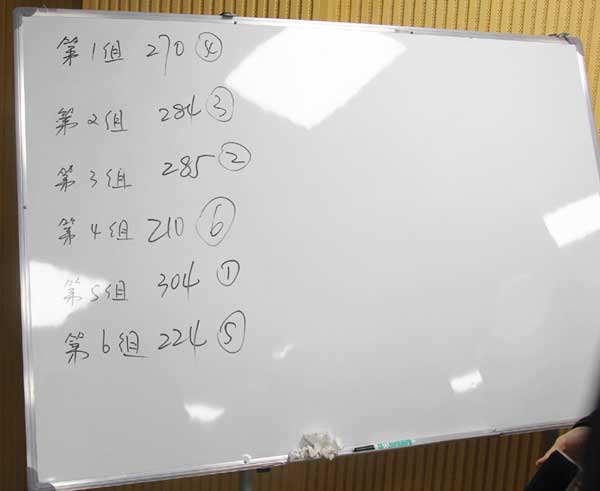 第1组 270 ④
第2组 284 ③
第3组 285 ②
第4组 210 ⑥
第5组 304 ①
第6组 224 ⑤